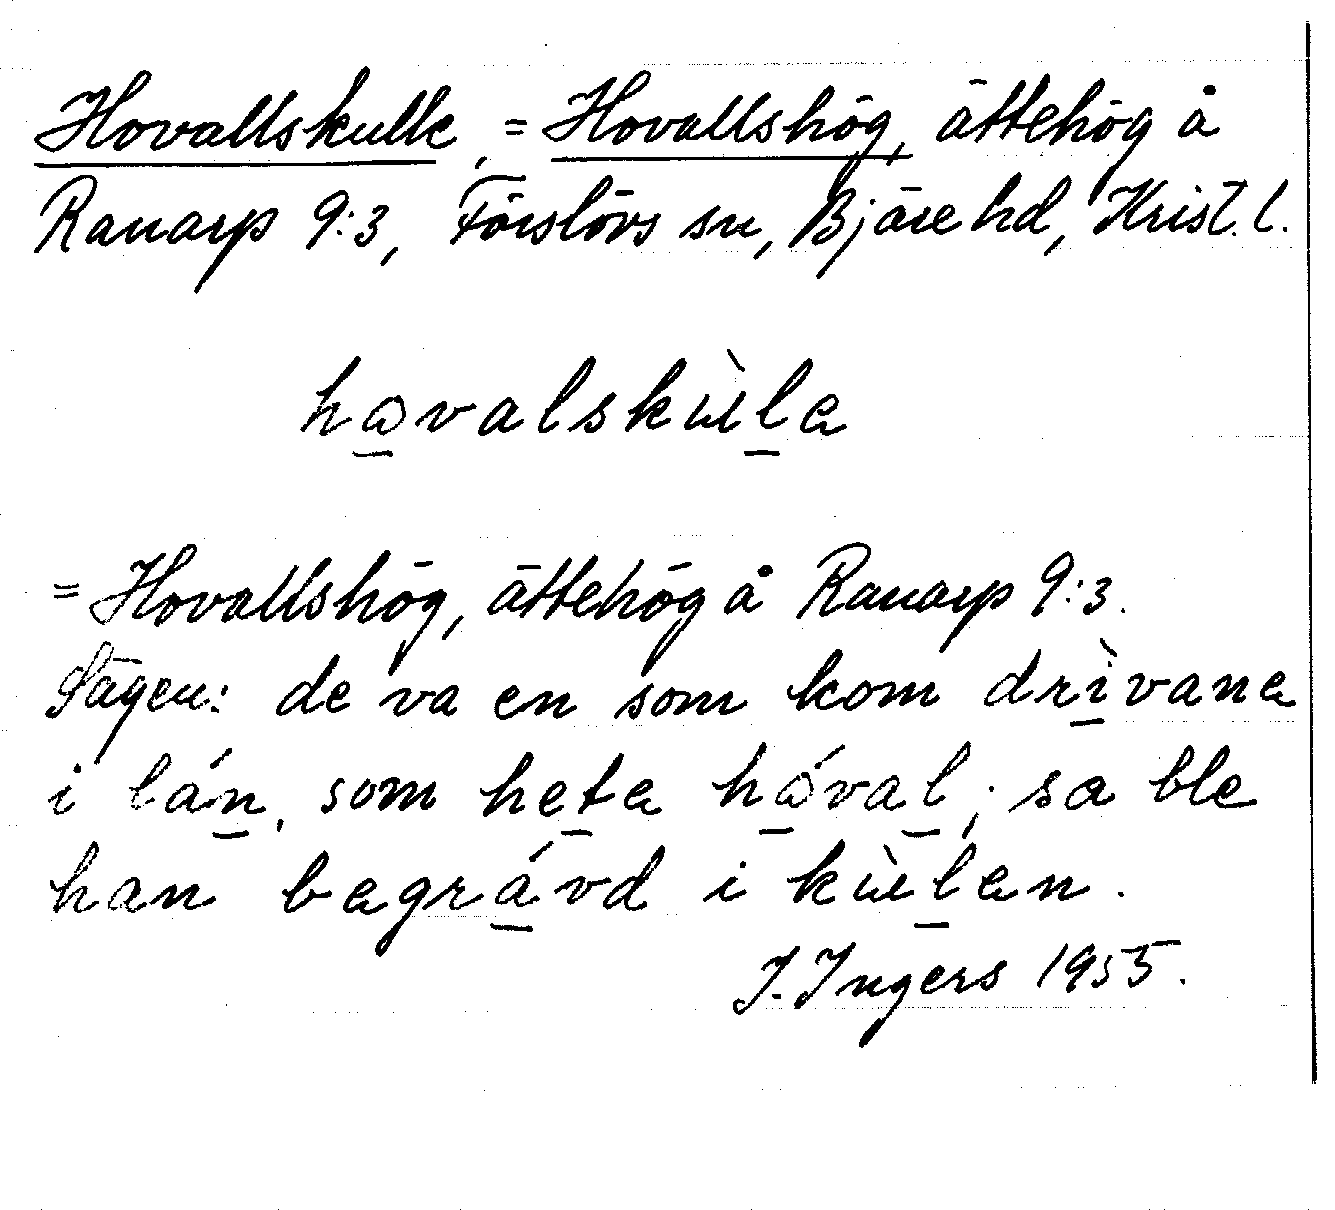 Hovallskulle, = Hovallshög, ättehög å
Ranarp 9:3, Förslövs sn, Bjäre hd, Krist. l.
hovalskùla
= Hovallshög, ättehög å Ranarp 9:3.
Sägen: de va en som kom drìvane
i lán, som heta hóval; sa ble
han begrávd i kùlen.
I. Ingers 1955.